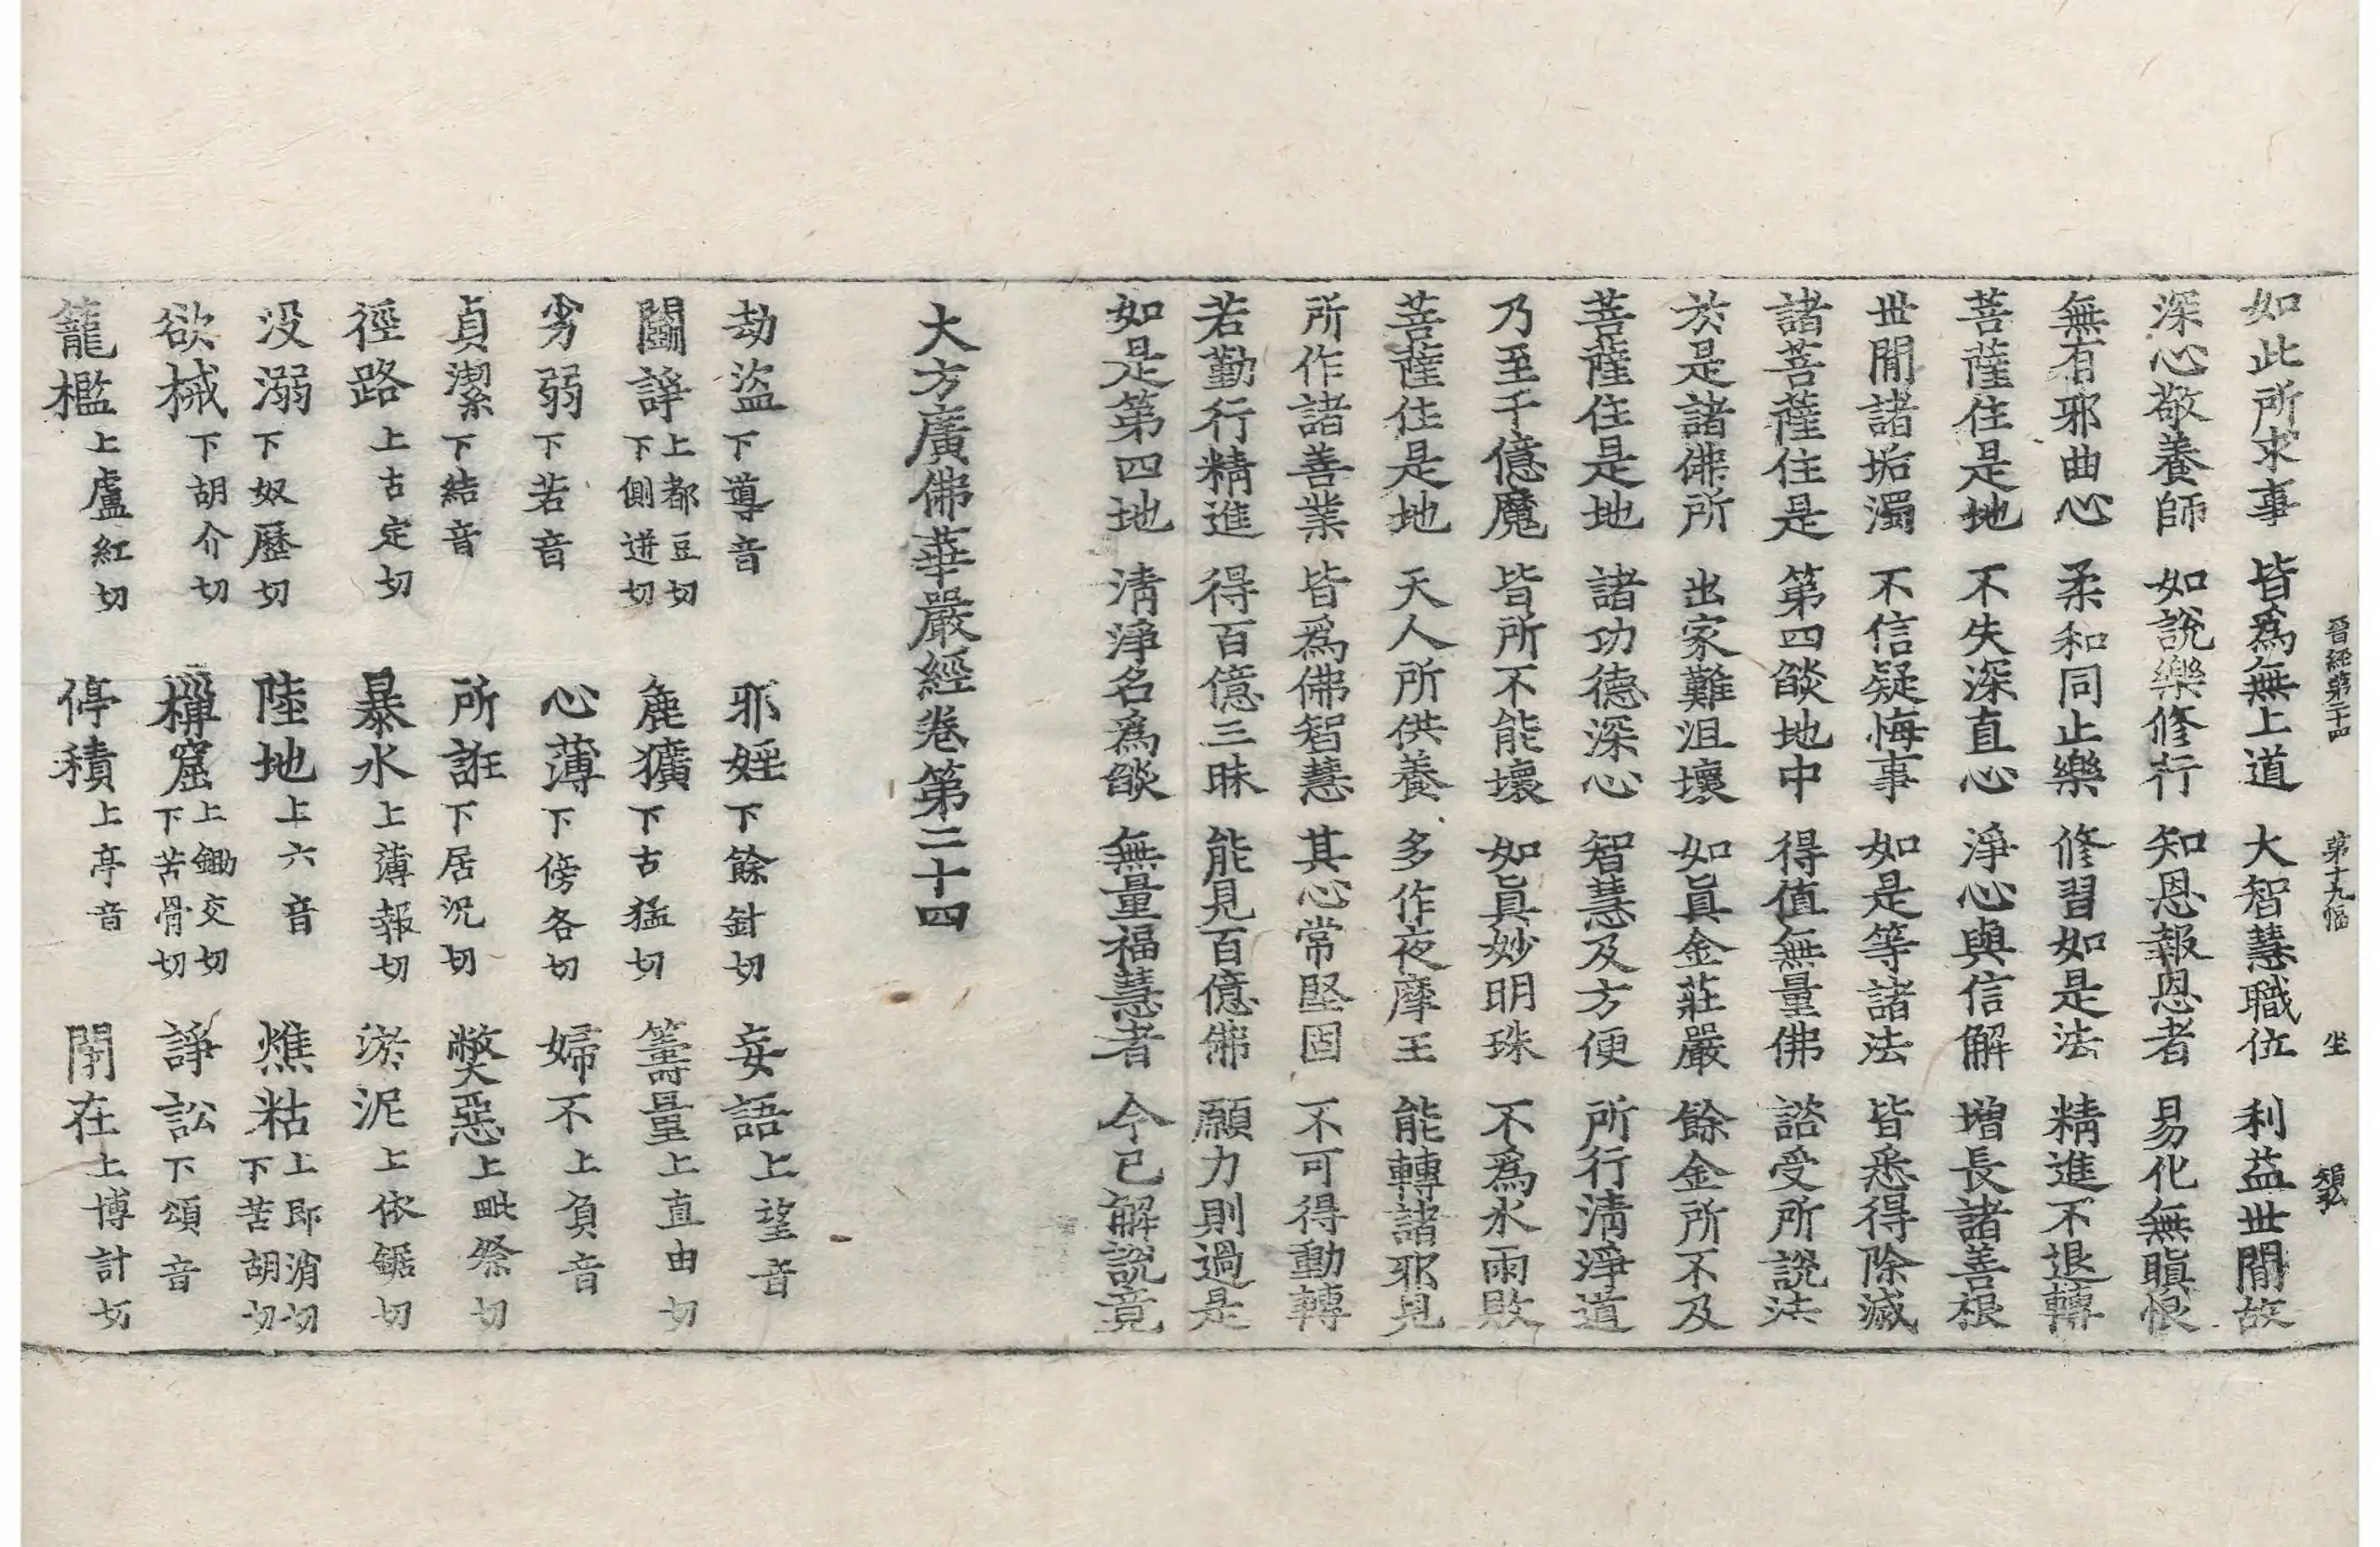 晉經第二十四 第十九幅 坐 智弘
如此所求事 皆爲無上道 大智慧職位 利益世閒故
深心敬養師 如說樂修行 知恩報恩者 易化無瞋恨
無有邪曲心 柔和同止樂 修習如是法 精進不退轉
菩薩住是地 不失深直心 淨心與信解 增長諸善根
世閒諸垢濁 不信疑悔事 如是等諸法 皆悉得除滅
諸菩薩住是 第四燄地中 得值無量佛 諮受所說法
於是諸佛所 出家難沮壞 如眞金莊嚴 餘金所不及
菩薩住是地 諸功德深心 智慧及方便 所行清淨道
乃至千億魔 皆所不能壞 如眞妙明珠 不爲水雨敗
菩薩住是地 天人所供養 多作夜摩王 能轉諸邪見
所作諸善業 皆爲佛智慧 其心常堅固 不可得動轉
若勤行精進 得百億三昧 能見百億佛 願力則過是
如是第四地 清淨名爲燄 無量福慧者 今已解說竟
大方廣佛華嚴經卷第二十四
劫盜下導音 邪婬下餘針切 妄語上望音
鬭諍上都豆切下側迸切 麁獷下古猛切 籌量上直由切
劣弱下若音 心薄下傍各切 婦不上負音
貞潔下結音 所誑下居況切 獘惡上毗祭切
徑路上古定切 暴水上薄報切 淤泥上依鋸切
没溺下奴歷切 陸地上六音 燋粘上即消切下苦胡切
欲械下胡介切 樔窟上鋤交切下苦骨切 諍訟下頌音
籠檻上盧紅切 停積上亭音 閇在上博計切